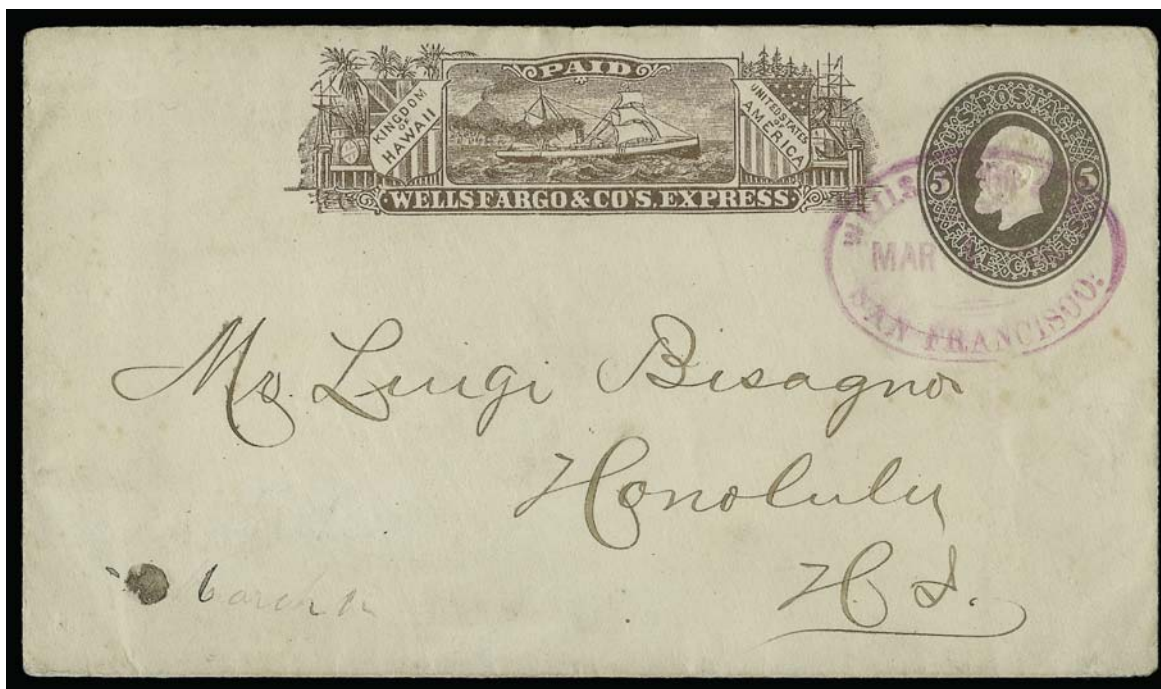 PAID
KINGDOM OF HAWAII
UNITED STATES OF AMERICA
WELLS FARGO & CO'S. EXPRESS
U.S. POSTAGE
5 5
FIVE CENTS
WELLS
MAR
SAN FRANCISCO.
Mr. Luigi Bisagno
Honolulu
H. I.